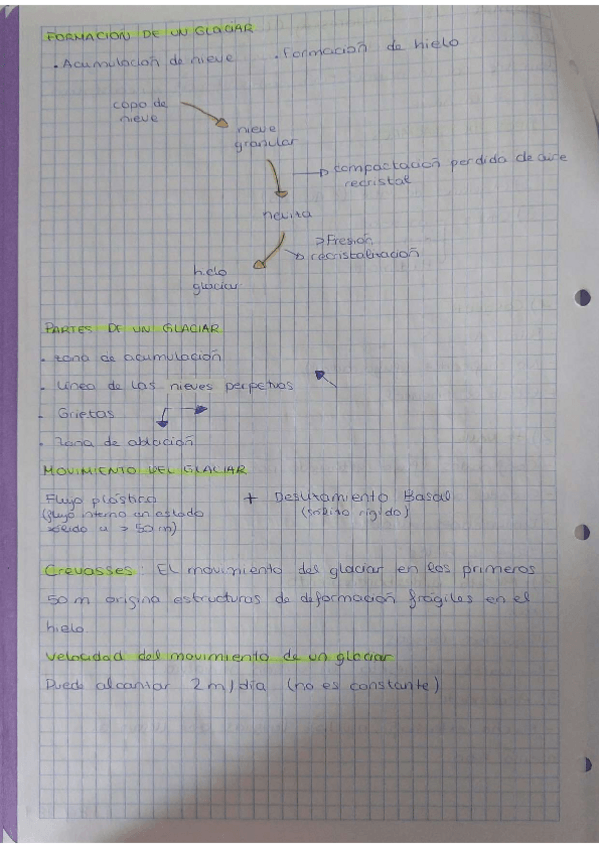 FORMACION DE UN GLACIAR
. Acumulación de nieve . Formación de hielo
copo de
nieve
nieve
granular
compactación perdida de aire
recristal
nevita
> Presión
recristalización
hielo
glaciar
PARTES DE UN GLACIAR
. zona de acumulación
. Línea de las nieves perpetuas
. Grietas
. Zona de ablación
MOVIMIENTO DEL GLACIAR
Flujo plástico + Deslizamiento Basal
(flujo interno en estado (rígido)
sólido a > 50m)
Crevasses: El movimiento del glaciar en los primeros
50 m origina estructuras de deformación frágiles en el
hielo.
Velocidad del movimiento de un glaciar
Puede alcanzar 2m/día (no es constante)